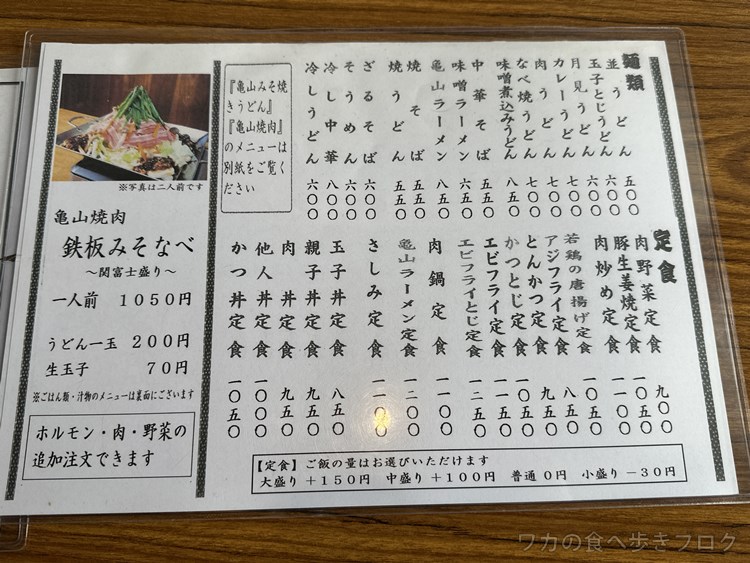 麺類
並うどん 五〇〇
玉子とじうどん 六〇〇
月見うどん 六〇〇
カレーうどん 七〇〇
肉うどん 七〇〇
なべ焼うどん 七〇〇
味噌煮込みうどん 八五〇
中華そば 五五〇
味噌ラーメン 六五〇
亀山ラーメン 八五〇
焼そば 五五〇
焼うどん 五五〇
ざるそば 六〇〇
そうめん 六〇〇
冷し中華 八〇〇
冷しうどん 六〇〇
『亀山みそ焼
きうどん』
『亀山焼肉』
のメニューは
別紙をご覧く
ださい
定食
肉野菜定食 九〇〇
豚生姜焼定食 一〇五〇
肉炒め定食 一一〇〇
若鶏の唐揚げ定食 一〇五〇
アジフライ定食 八五〇
とんかつ定食 九五〇
かつとじ定食 一〇五〇
エビフライ定食 一一五〇
エビフライとじ定食 一二五〇
肉鍋定食 一一〇〇
亀山ラーメン定食 一二〇〇
さしみ定食 一一〇〇
玉子丼定食 八五〇
親子丼定食 九五〇
肉丼定食 九五〇
他人丼定食 一〇〇〇
かつ丼定食 一〇五〇
【定食】ご飯の量はお選びいただけます
大盛り+150円 中盛り+100円 普通0円 小盛り-30円
※写真は二人前です
亀山焼肉
鉄板みそなべ
~関富士盛り~
一人前 1050円
うどん一玉 200円
生玉子 70円
※ごはん類・汁物のメニューは裏面にございます
ホルモン・肉・野菜の
追加注文できます
ワカの食べ歩きブログ